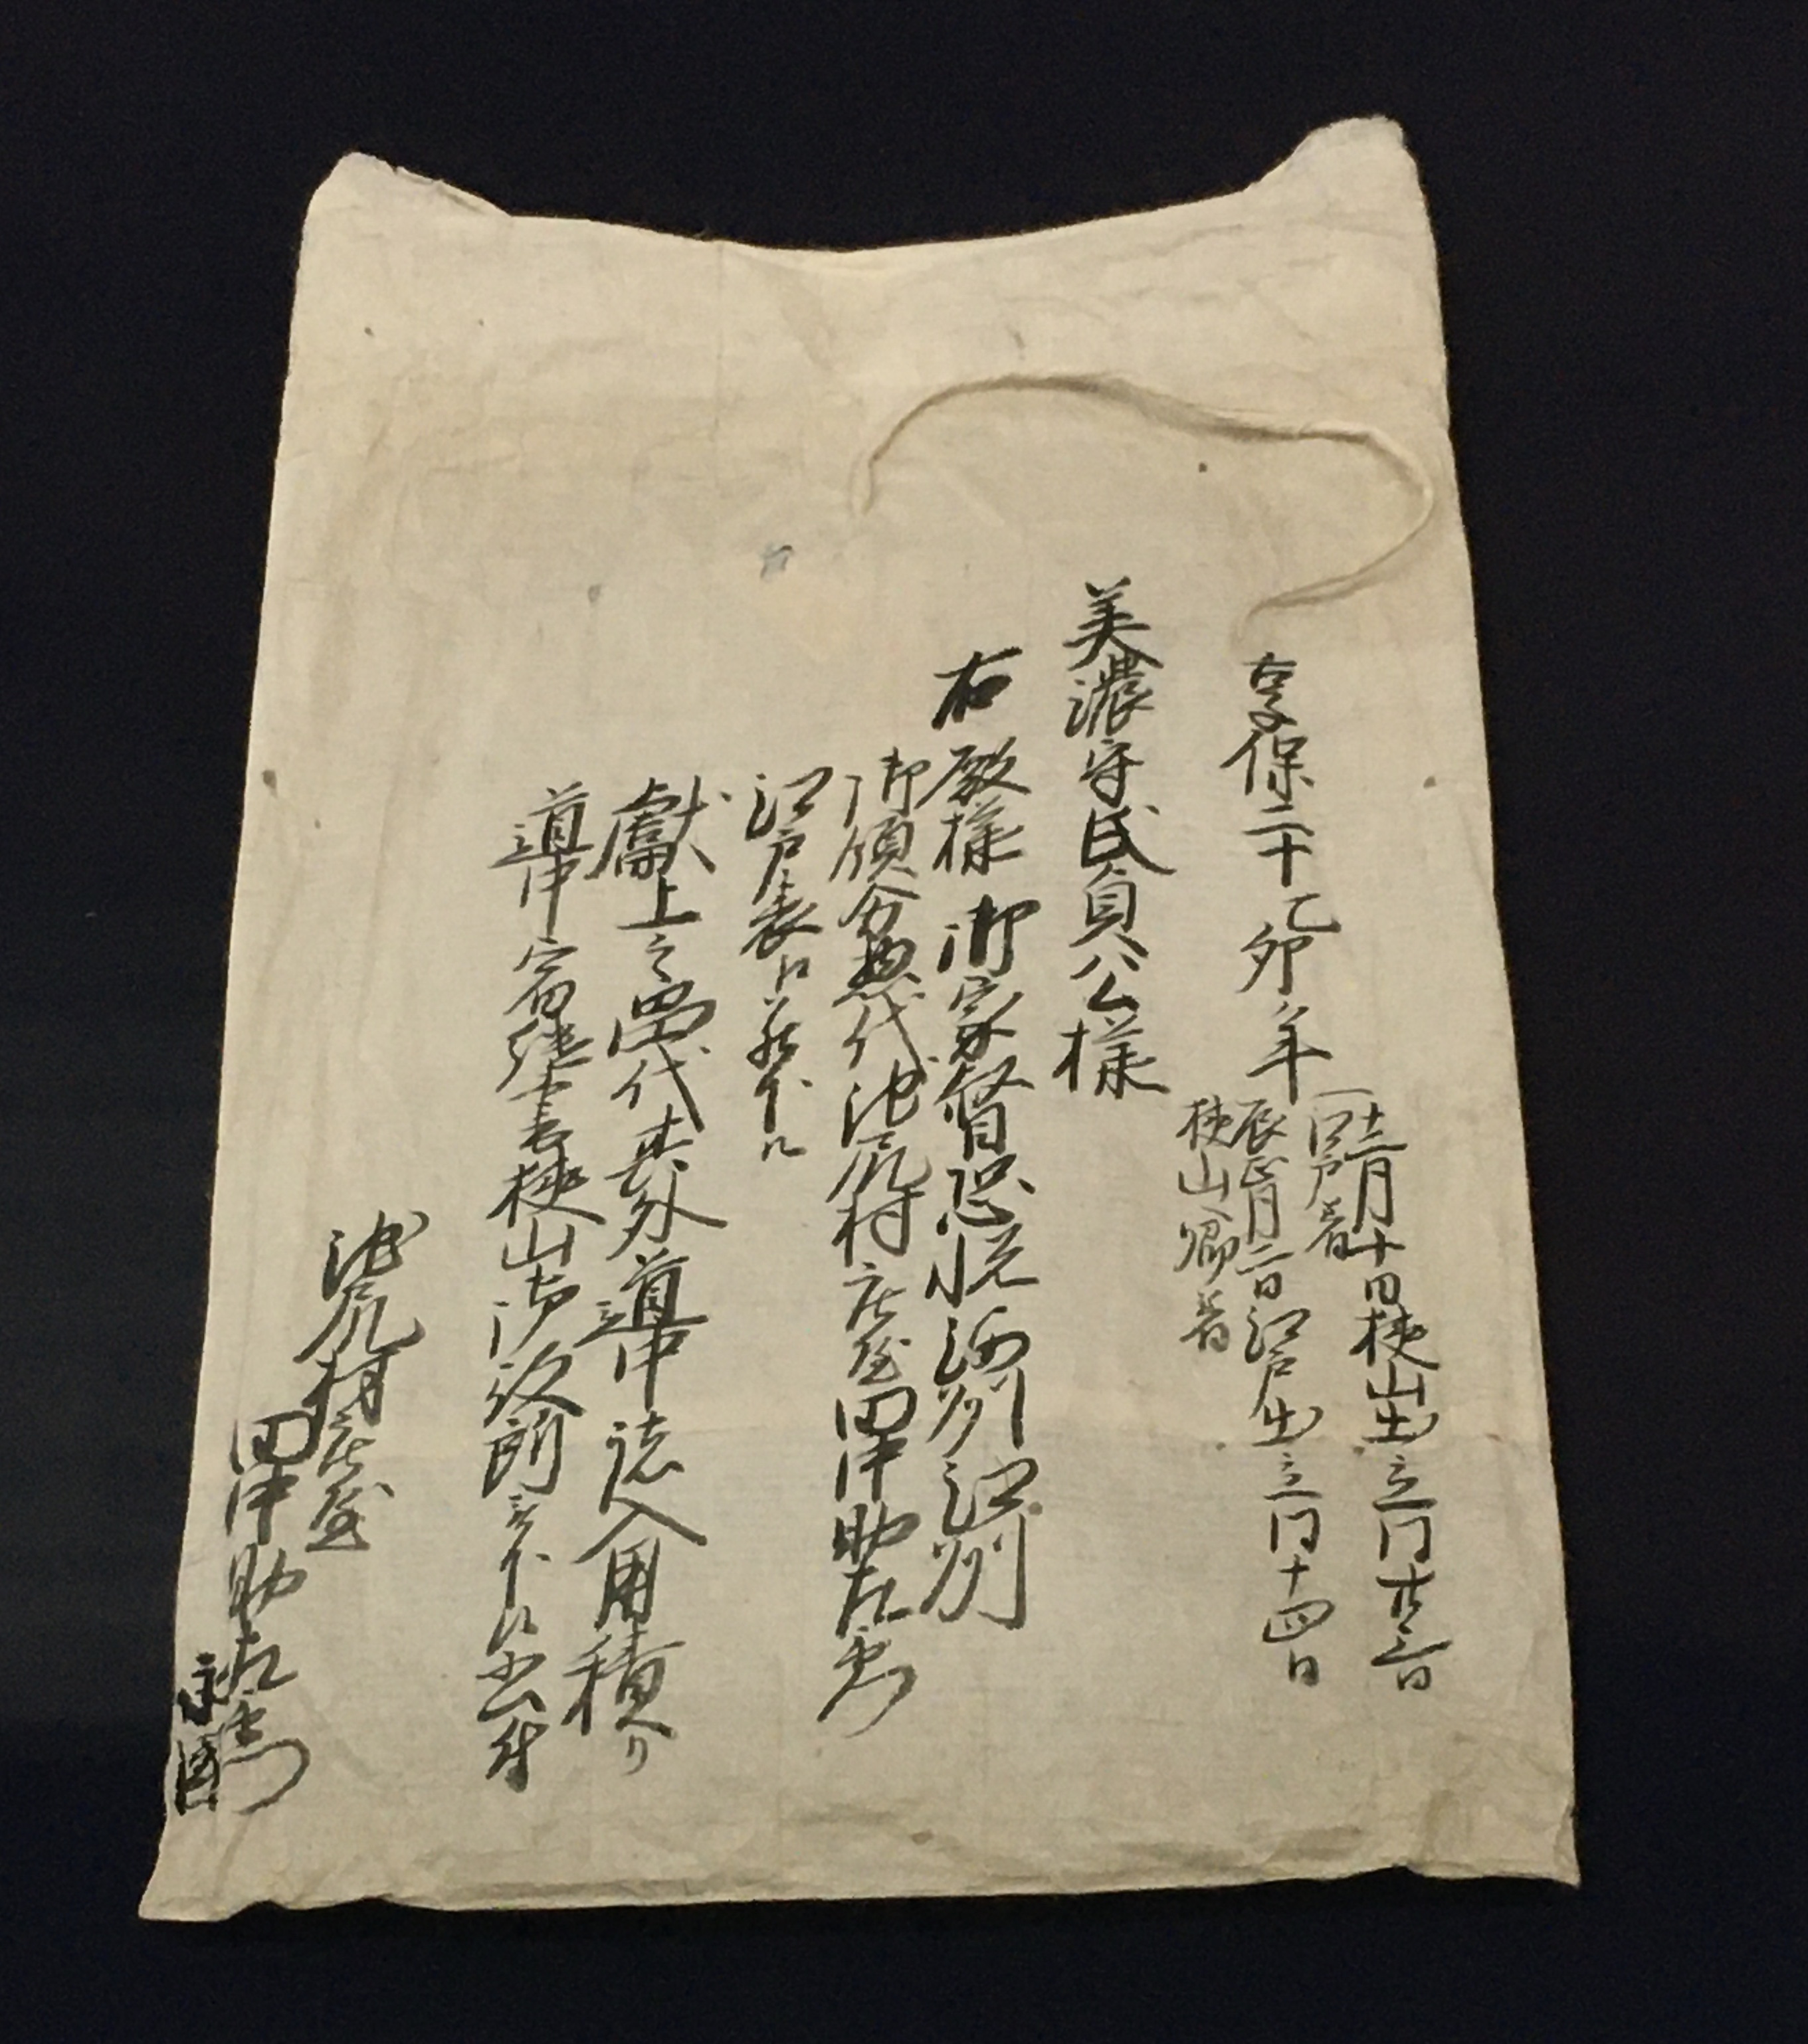 享保二十乙卯年
十二月十日狭山出立同廿三日
江戸着
辰正月二日江戸出立同十四日
狭山帰着
美濃守氏貞公様
右殿様御家督恐悦
御領分惣代池尻村庄屋田中助左衛門
江戸表江罷下候
献上之品代其外道中諸入用積り
道中宿継書狭山御役所 下候書付
池尻村庄屋
田中助左衛門